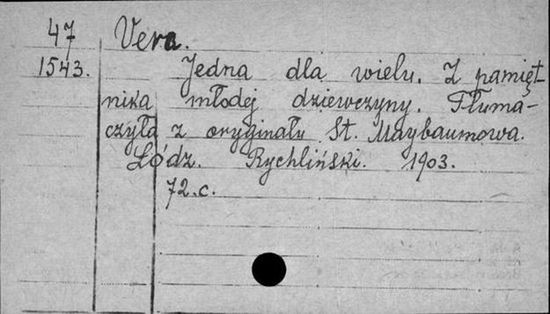 47 Vera.
1543. Jedna dla wielu. Z pamięt
nika młodej dziewczyny. Tłuma-
czyła z oryginału St. Maybaumowa.
Łódz. Rychliński. 1903.
72.c.